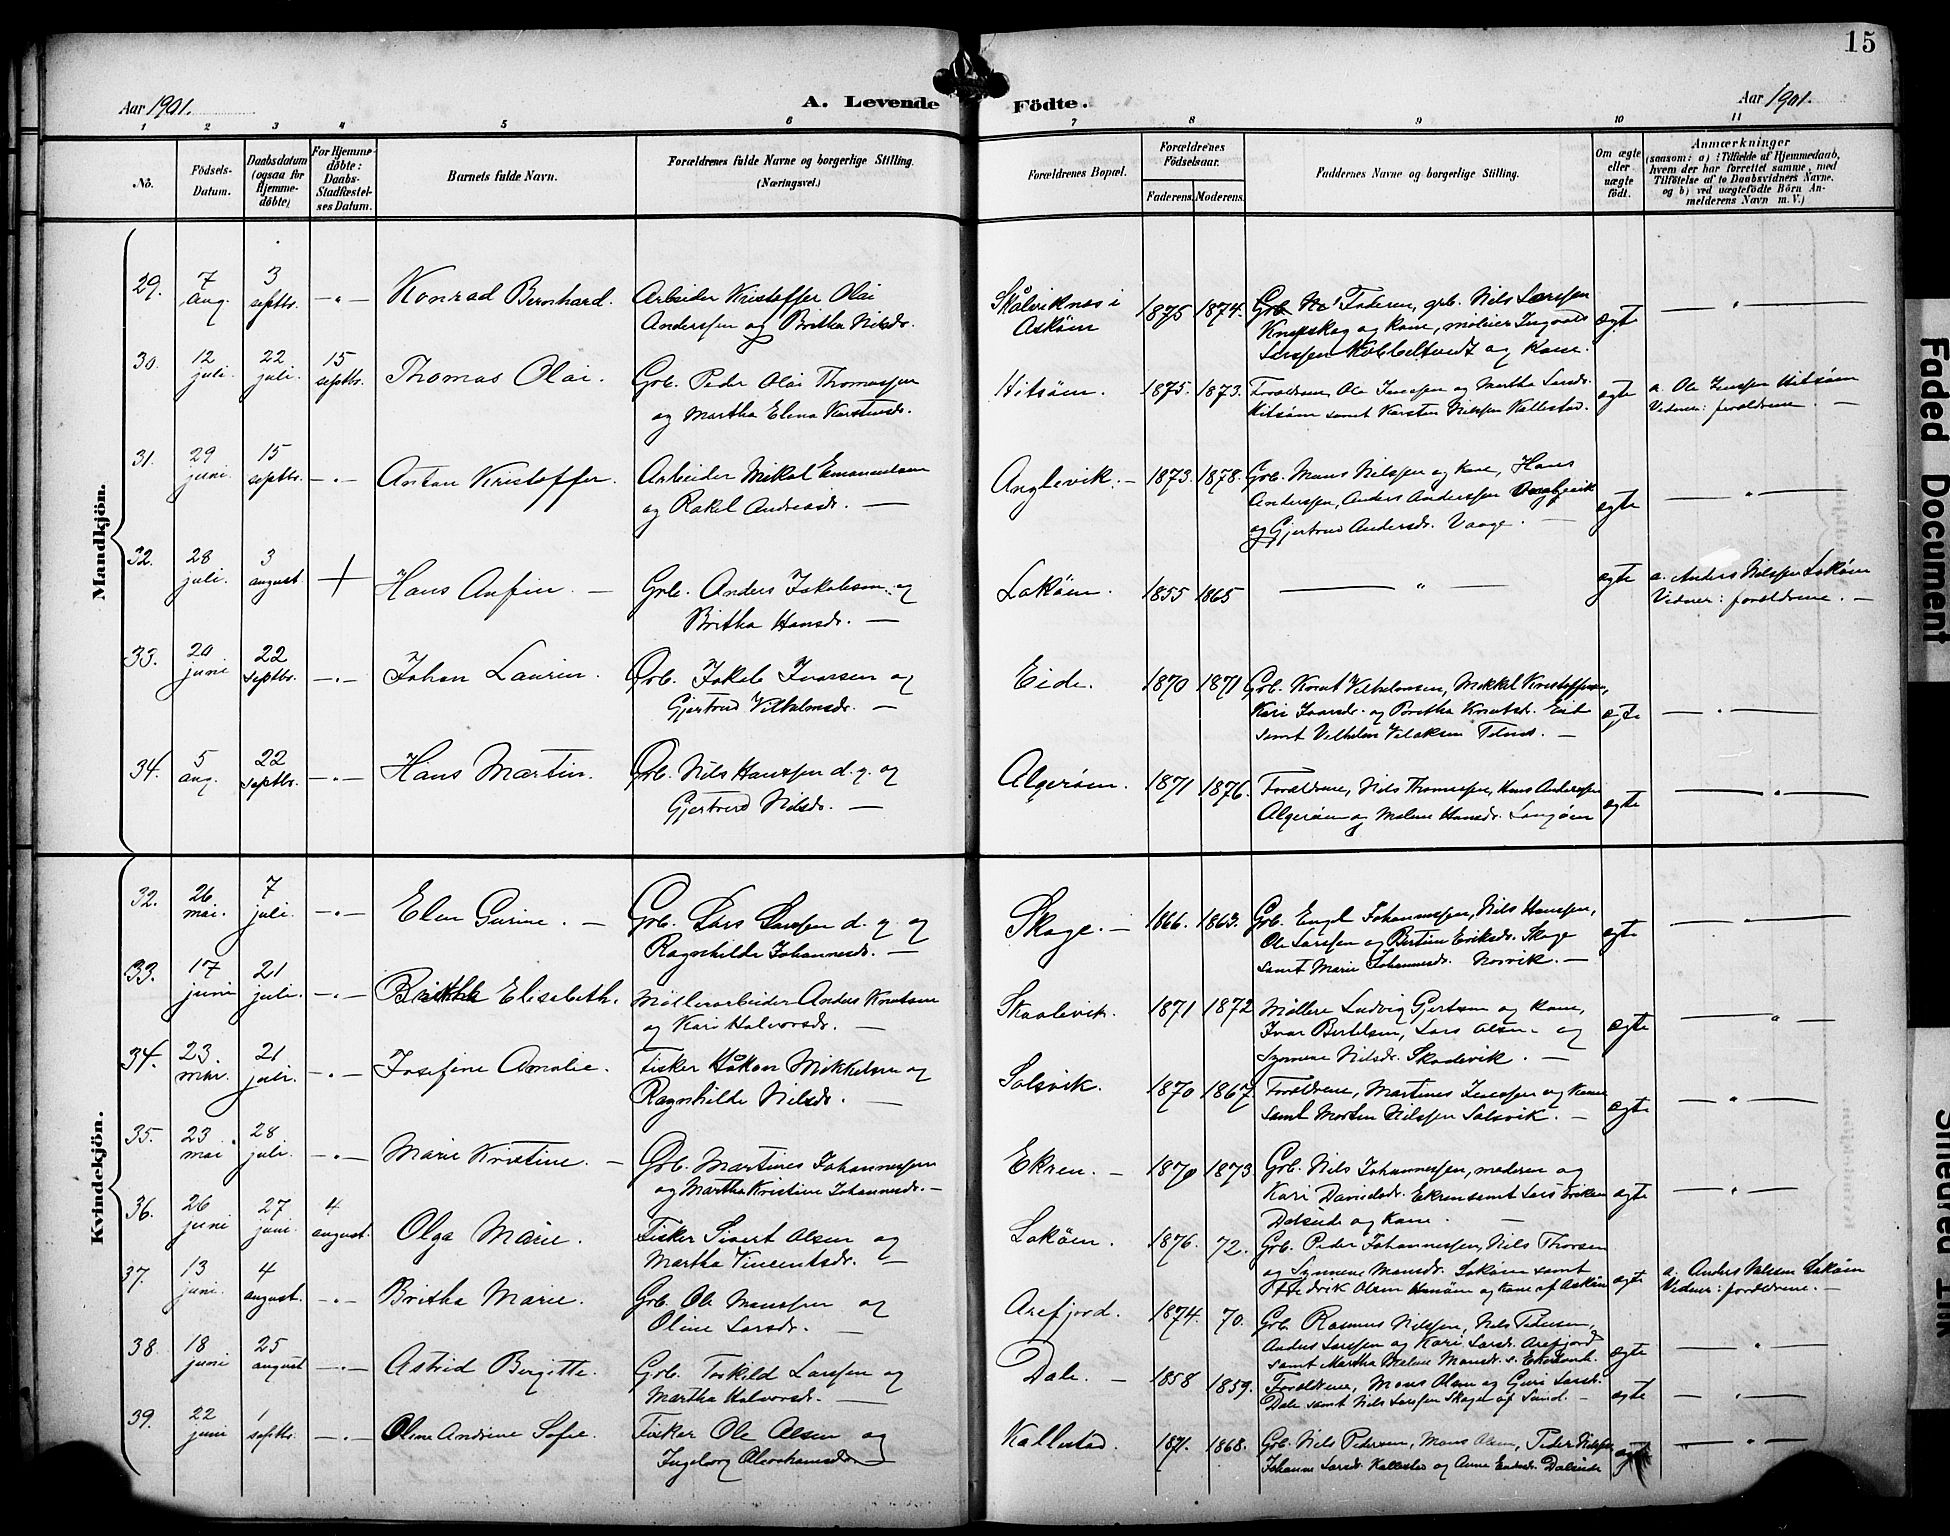 15
Aar 1901.
A. Levende Födte.
Aar 1901.
1 2 3 4 5 6 7 8 9 10 11
No.
Födsels-
Datum.
Daabsdatum
(ogsaa for
Hjemme-
döbte)
For Hjemme-
döbte:
Daabs-
Stadfæstel-
ses Datum.
Barnets fulde Navn.
Forældrenes fulde Navne og borgerlige Stilling.
(Næringsvei.)
Forældrenes Bopæl.
Forældrenes
Födselsaar.
Faderens. Moderens.
Faddernes Navne og borgerlige Stilling.
Om ægte
eller
uægte
födt.
Anmærkninger
(saasom: a) i Tilfælde af Hjemmedaab,
hvem der har forrettet samme, med
Tilföielse af to Daabsvidners Navne.
og b) ved uægtefödte Börn An-
melderens Navn m. V.)
Mandkjön.
29. 7 aug. 3 septbr. Konrad Bernhard. Arbeider Kristoffer Olai
Anderssen og Britha Nilsdr.
Askøen 1875 1874. Faderen, grb. Nils Larssen
og kone,
og kone. ægte
30. 12 juli. 22 juli. 15 septbr. Thomas Olai. Grb. Peder Olai Thomassen
og Martha Elina Karstensdr.
Hitsøen. 1875. 1873. Forældrene, Ole Jenssen og Martha Larsdr.
Hitsøen samt Karsten Nilssen Kallestad. ægte a. Ole Jenssen Hitsøen
Vidner: forældrene.
31. 29 juni. 15 septbr. Anton Kristoffer. Arbeider Mikal Emanuelsen
og Rakel Andreasdr.
Anglevik. 1873. 1878. Grb. Mons Nilssen og kone, Hans
Anderssen, Anders Anderssen
og Gjertrud Andersdr. Vaage. ægte
32. 28 juli. 3 august + Hans Anfin. Grb. Anders Jakobsen og
Britha Hansdr.
Lokøen. 1855 1865 ægte a. Anders Nilssen Lokøen
Vidner: forældrene.
33. 20 juni 22 septbr. Johan Laurin. Grb. Jakob Ivarsen og
Gjertrud Vilhelmsdr.
Eide. 1870 1871 Grb. Knut Vilhelmsen, Mikkel Kristoffersen,
Kari Ivarsdr. og Britha Knutsdr. Eide
samt Vilhelm ægte
34. 5 aug. 22 septbr. Hans Martin. Grb. Nils Hanssen d. y. og
Gjertrud Nilsdr.
Algerøen. 1871 1876. Forældrene, Nils Thomassen, Hans Anderssen
Algerøen og Malene Hansdr. Langøen ægte
Kvindekjön.
32. 26 mai. 7 juli. Elen Gurine. Grb. Lars Larssen d. y. og
Ragnhilde Johannesdr.
Skoge. 1866. 1863. Grb. Engel Johannessen, Nils Hanssen,
Ole Larssen og Bertine Eriksdr. Skoge
samt Marie Johannesdr. Norvik. ægte
33. 17 juni 21 juli. Brithe Elisabeth. Møllerarbeider Anders Knutsen
og Kari Halvorsdr.
Skaalevik. 1871 1872 Møller Ludvig Gjertsen og kone,
Ivar Bertelsen, Lars Olsen og
Synneve Nilsdr. Skaalevik. ægte
34. 23. mai. 21 juli. Josefine Amalie. Fisker Håkon Mikkelsen og
Ragnhilde Nilsdr.
Solsvik. 1870 1867. Forældrene, Martines Jenssen og kone
samt Morten Nilssen Solsvik. ægte
35. 23 mai 28 juli. Marie Kristine. Grb. Martines Johannessen
og Martha Kristine Johannesdr.
Ekren. 1870 1873. Grb. Nils Johannessen, moderen og
Kari Davidsdr. Ekren samt Lars Eriksen
Dalseide og kone. ægte
36. 26 juni 27 juni. 4 august. Olga Marie. Fisker Sivert Olsen og
Martha Vincentsdr.
Lokøen. 1876. 72. Grb. Peder Johannessen, Nils Thorsen
og Synneve Monsdr. Lokøen samt
Hendrik Olsen og kone af Askøen ægte a. Anders Nilssen Lokøen
Vidner: forældrene.
37. 13 juni. 4 august. Britha Marie. Grb. Ole Monssen og
Oline Larsdr.
Arefjord. 1874. 70. Grb. Rasmus Nilssen, Nils Pedersen,
Anders Larssen og Kari Larsdr. Arefjord
samt Martha Malene Monsdr. ægte
38. 18 juni 25 august Astrid Bergitte. Grb. Torkild Larssen og
Martha Halvorsdr.
Dale. 1858 1859. Forældrene, Mons Olsen og Guri Larsdr.
Dale samt Nils Larssen Skoge af Sund. ægte
39. 22 juni 1 septbr. Oline Andrine Sofie. Fisker Ole Olsen og
Ingeborg
Kallestad. 1871. 1868. Grb. Nils Pedersen, Mons Olsen, Peder Nilssen
Johanne Larsdr. Kallestad og Anne Dalseide ægte
Faded Document
Smeared Ink